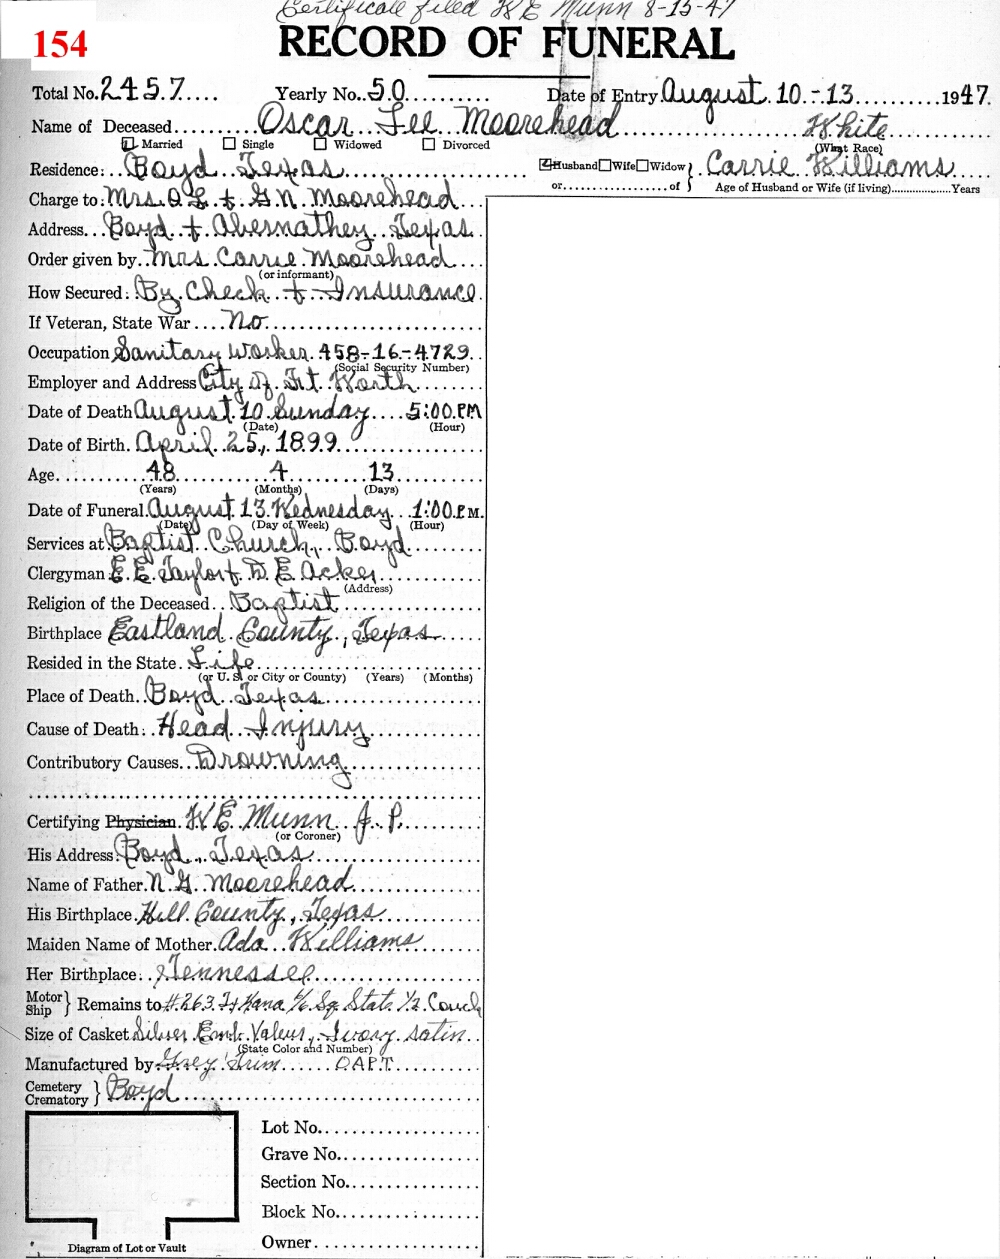 Certificate filed W E Munn 8-15-47
154
RECORD OF FUNERAL
Total No. 2457 Yearly No. 50 Date of Entry August 10-13 1947
Name of Deceased Oscar Lee Moorehead White
Married Single Widowed Divorced (What Race)
Residence: Boyd Texas Husband Wife Widow } Carrie Williams
or of } Age of Husband or Wife (if living) Years
Charge to: Mrs. O L + G.N. Moorehead
Address Boyd + Abernathey Texas
Order given by Mrs Carrie Moorehead
(or informant)
How Secured: By Check + Insurance
If Veteran, State War No
Occupation Sanitary Worker 458-16-4729
(Social Security Number)
Employer and Address City of Ft. Worth
Date of Death August 10 Sunday 5:00 PM
(Date) (Hour)
Date of Birth April 25, 1899
Age 48 4 13
(Years) (Months) (Days)
Date of Funeral August 13 Wednesday 1:00 P.M.
(Date) (Day of Week) (Hour)
Services at Baptist Church, Boyd
Clergyman E. E. Taylor + D. E. Acker
(Address)
Religion of the Deceased Baptist
Birthplace Eastland County, Texas
Resided in the State Life
(or U. S. or City or County) (Years) (Months)
Place of Death Boyd Texas
Cause of Death: Head Injury
Contributory Causes Drowning
Certifying Physician W. E. Munn J. P.
(or Coroner)
His Address: Boyd, Texas
Name of Father N. G. Moorehead
His Birthplace Hill County, Texas
Maiden Name of Mother Ada Williams
Her Birthplace: Tennessee
Motor Ship } Remains to #263 Sq. State 1/2 Couch
Size of Casket Silver Emb. Ivory satin
(State Color and Number)
Manufactured by Grey Trim DAPT
Cemetery Crematory } Boyd
Lot No.
Grave No.
Section No.
Block No.
Owner
Diagram of Lot or Vault